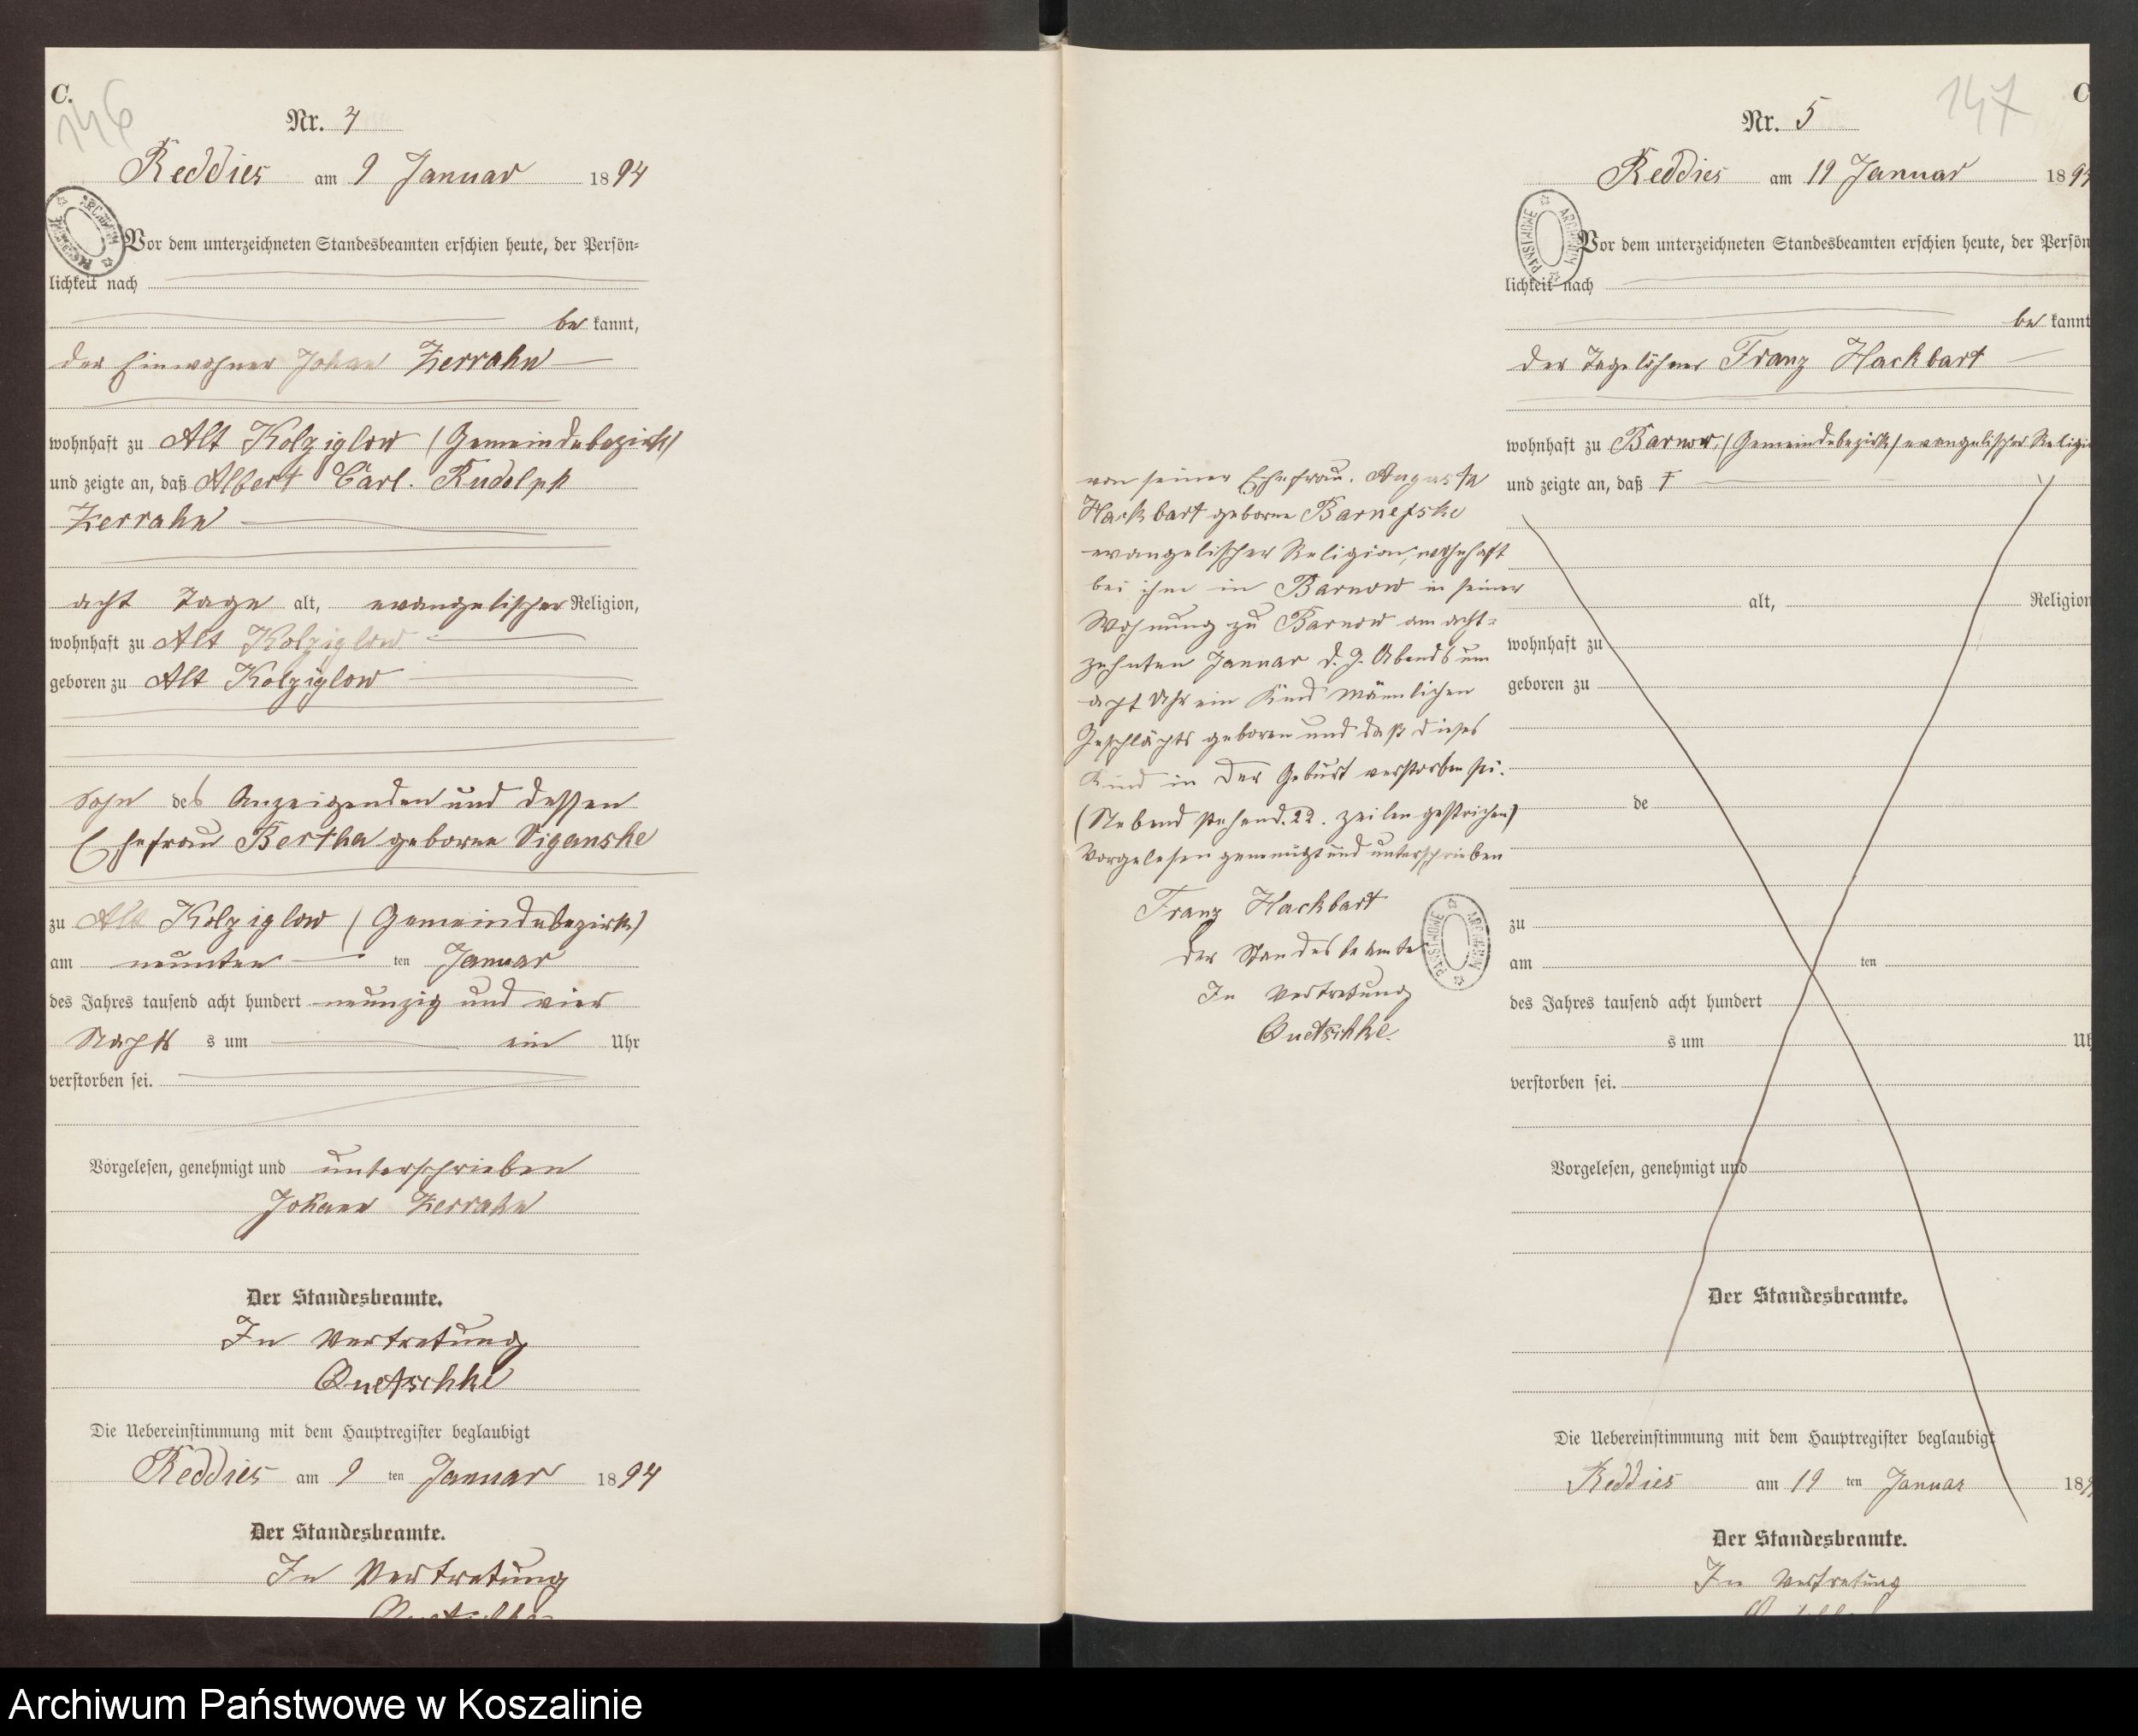 C.
146
Nr. 4
Reddies am 9 Januar 1894
Vor dem unterzeichneten Standesbeamten erschien heute, der Persön-
lichkeit nach
be kannt,
der Einwohner Johan Zerrahn
wohnhaft zu Alt Kolziglow (Gemeindebezirk)
und zeigte an, daß Albert Carl. Rudolph
Zerrahn
acht Tage alt, evangelischer Religion,
wohnhaft zu Alt Kolziglow
geboren zu Alt Kolziglow
Sohn des Anzeigenden und dessen
Ehefrau Bertha geborne Viganske
zu Alt Kolziglow (Gemeindebezirk)
am neunten ten Januar
des Jahres tausend acht hundert neunzig und vier
Nachts s um ein Uhr
verstorben sei.
Vorgelesen, genehmigt und unterschrieben
Johann Zerrahn
Der Standesbeamte.
In Vertretung
Quetschke
Die Uebereinstimmung mit dem Hauptregister beglaubigt
Reddies am 9 ten Januar 1894
Der Standesbeamte.
In Vertretung
Quetschke
147
C
Nr. 5
Reddies am 19 Januar 1894
ARCHIWUM PAŃSTWOWE
Vor dem unterzeichneten Standesbeamten erschien heute, der Persön
lichkeit nach
be kannt
der Tagelöhner Franz Hackbart
wohnhaft zu Barnow (Gemeindebezirk) evangelischer Religi
und zeigte an, daß
alt, Religion
wohnhaft zu
geboren zu
de
zu
am ten
des Jahres tausend acht hundert
s um Uh
verstorben sei.
Vorgelesen, genehmigt und
Der Standesbeamte.
von seiner Ehefrau. Augusta
Hackbart geborne Barnefske
evangelischer Religion, wohnhaft
bei ihm in Barnow in seiner
Wohnung zu Barnow am acht-
zehnten Januar d. J. Abends um
acht Uhr ein Kind männlichen
Geschlächts geboren und daß dieses
Kind in der Geburt verstorben sei.
(Nebend stehend. 22. zeilen gestrichen)
Vorgelesen genemigt und unterschrieben
Franz Hackbart
der Standesbeamte
In Vertretung
Quetschke.
ARCHIWUM PAŃSTWOWE
Die Uebereinstimmung mit dem Hauptregister beglaubigt
Reddies am 19 ten Januar 189
Der Standesbeamte.
In Vertretung
Archiwum Państwowe w Koszalinie